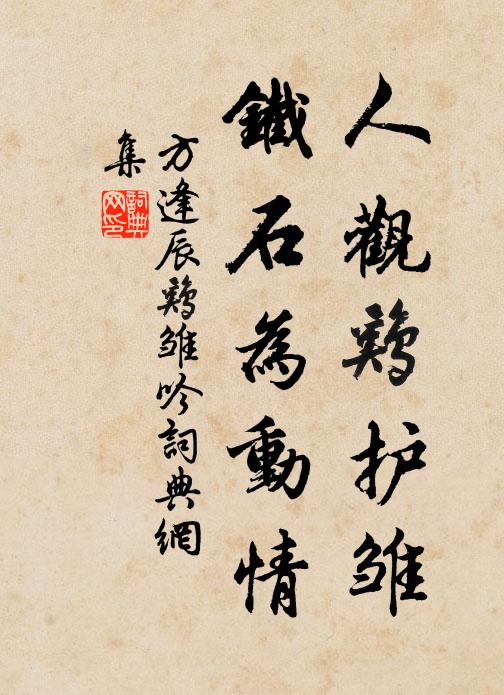 人觀鷄护雏
鐵石為動情
方逢辰鷄雏吟詞典網
集
詞典
网印